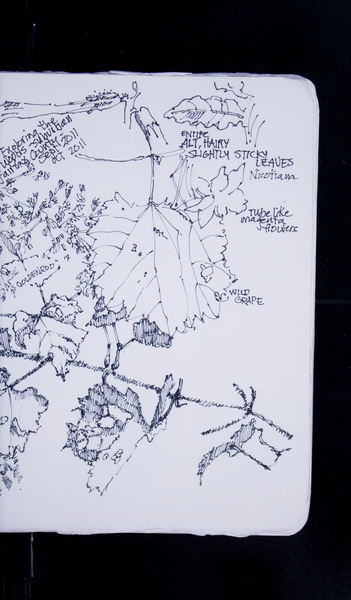 Exploring the
Suburban
County
Fairfax Sept 2011
Oct 2011
ENTIRE
ALT, HAIRY
SLIGHTLY STICKY
LEAVES
Nicotiana
Tube like
magenta
flowers
GOLDENROD
WILD
GRAPE